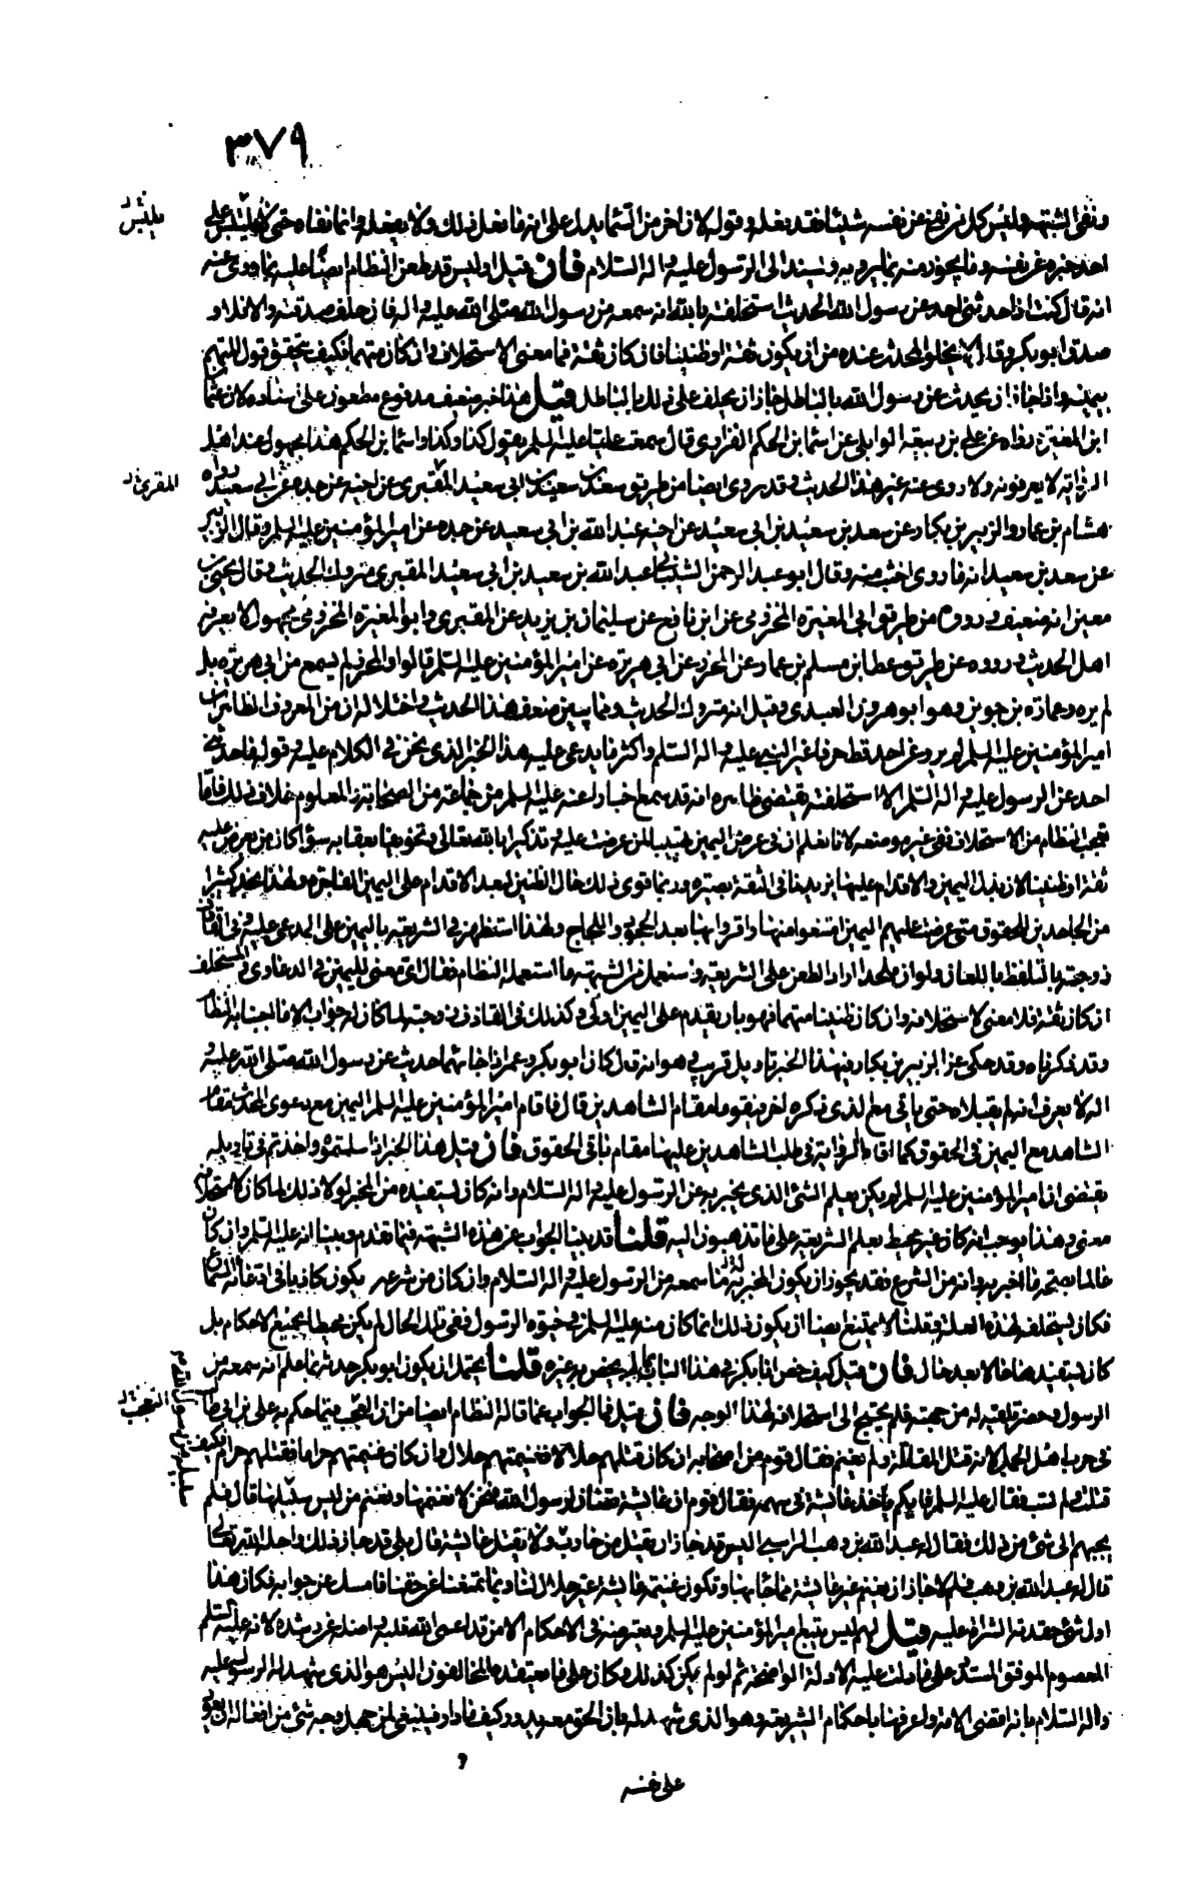 ٣٧٩
ونفى الشبهة وليس كل من نفى عن نفسه شيئا فقد يفعله وقوله لان اخر من السماء يدل على انه ما فعل ذلك ولا يفعله وانما نفاه حتى لا يلتبس على
يلتبس
احد خبره عن نفسه وما يجوز منه مما يرويه ويسنده الى الرسول عليه واله السلام فان قيل اوليس قد طعن النظام ايضا عليه بما روى عنه
انه قال كنت اذا حدثنى احد عن رسول الله الحديث استحلفته بالله انه سمعه من رسول الله صلى الله عليه واله فان حلف صدقته والا فلا و
صدق ابو بكر وقال لا يخلو المحدث عنده من ان يكون ثقة او ظنينا فان كان ثقة فما معنى الاستحلاف وان كان متهما فكيف يتحقق قول المتهم
بيمينه واذا جاز ان يحدث عن رسول الله بالباطل جاز ان يحلف على ذلك بالباطل قيل هذا خبر ضعيف مدفوع مطعون على اسناده لان عثمان
ابن المغيرة رواه عن على بن ربيعة الوابلى عن اسما بن الحكم الفزارى قال سمعت عليا عليه السلم يقول كذا وكذا واسما بن الحكم هذا مجهول عند اهل
الرواية لا يعرفونه ولا روى عنه غير هذا الحديث وقد روى ايضا من طريق سعد بن سعيد بن ابى سعيد المقبرى عن اخيه عن جده ابى سعيد رواه
المقرئ
هشام بن عمار والزبير بن بكار عن سعد بن سعيد بن ابى سعيد عن اخيه عبد الله بن ابى سعيد عن جده عن امير المؤمنين عليه السلم وقال الزبير
عن سعد بن سعيد انه ما روى اخبث منه وقال ابو عبد الرحمن الشيبانى عبد الله بن سعيد بن ابى سعيد المقبرى متروك الحديث وقال يحيى بن
معين انه ضعيف ورووه من طريق ابى المغيرة المخزومى عن ابن نافع عن سليمان بن يزيد عن المقبرى وابو المغيرة المخزومى مجهول لا يعرفه
اهل الحديث ورووه عن طريق عطا بن مسلم بن عمار عن المحرز عن ابى هريرة عن امير المؤمنين عليه السلم قالوا والمحرز لم يسمع من ابى هريرة بل
لم يره وعمارة بن جوين وهو ابو هرون العبدى وقيل انه متروك الحديث ومما يبين ضعف هذا الحديث واختلاله ان من المعروف الظاهر ان
امير المؤمنين عليه السلم لم يرو عن احد قط حرفا غير النبى عليه واله السلم واكثر ما يدعى عليه هذا الخبر الذى نحن فى الكلام عليه وقوله ما حدثنى
احد عن الرسول عليه واله السلم الا استحلفته يقتضى ظاهره انه قد سمع اخبارا عنه عليه السلم من جماعة من الصحابة والمعلوم خلاف ذلك فاما
تعجب النظام من الاستحلاف ففى غير موضعه لانا نعلم ان فى عرض اليمين تهيبا لمن عرضت عليه وتذكيرا بالله تعالى وتخويفا بعقابه سواء كان من تعرض عليه
ثقة او ظنينا لان بذل اليمين والاقدام عليها يزيدنا فى الثقة بصيرة وربما قوى ذلك حال الظنين لبعد الاقدام على اليمين الفاجرة ولهذا نجد كثيرا
من الجاحدين للحقوق متى عرضت عليهم اليمين امتنعوا منها واقروا بها بعد الجحود واللجاج ولهذا استظهر فى الشريعة باليمين على المدعى عليه وفى القاذف
زوجته بالتلفظ باللعان ولو ان ملحدا اراد الطعن على الشريعة واستعمل من الشبهة ما استعمله النظام فقال اى معنى لليمين فى الدعاوى والمستحلف
ان كان ثقة فلا معنى لاستحلافه وان كان ظنينا متهما فهو بان يقدم على اليمين اولى وكذلك فى القاذف زوجته لما كان له جواب الا ما اجبنا به النظام
وقد ذكرناه وقد حكى عن الزبير بن بكار فى هذا الخبر تاويل قريب وهو انه قال كان ابو بكر وعمر اذا جاءهما حديث عن رسول الله صلى الله عليه و
اله لا يعرفانه لم يقبلاه حتى ياتى مع الذى ذكره اخر فيقوما مقام الشاهدين قال فاقام امير المؤمنين عليه السلم اليمين مع دعوى المحدث مقام
الشاهد مع اليمين فى الحقوق كما اقاما الرواية فى طلب الشاهدين عليها مقام باقى الحقوق فان قيل هذا الخبر اذا سلمتموه واخذتم فى تاويله
يقتضى ان امير المؤمنين عليه السلم لم يكن يعلم الشئ الذى يخبر به عن الرسول عليه واله السلام وانه كان يستفيده من المخبر لولا ذلك لما كان لاستحلافه
معنى وهذا يوجب انه كان غير محيط بعلم الشريعة على ما تذهبون اليه قلنا قد بينا الجواب عن هذه الشبهة فيما تقدم وبينا انه عليه السلم وان كان
عالما بصحة ما اخبر به وانه من الشرع فقد يجوز ان يكون المخبر له به ما سمعه من الرسول عليه واله السلام وان كان من شرعه ويكون كاذبا فى ادعائه السماع
فكان يستحلفه لهذه العلة وقلنا لا يمتنع ايضا ان يكون ذلك انما كان منه عليه السلم فى حيوة الرسول وفى تلك الحال لم يكن محيطا بجميع الاحكام بل
كان يستفيدها حالا بعد حال فان قيل كيف خص ابا بكر فى هذا الباب بما لم يخص به غيره قلنا يحتمل ان يكون ابو بكر حدثه بما علم انه سمعه من
الرسول وحضر تلقيه له من جهته فلم يحتج الى استحلافه لهذا الوجه فان قيل فما الجواب عما قاله النظام ايضا من ان العجب مما حكم به على بن ابى طالب
التعجب
فى حرب اهل الجمل لانه قتل المقاتلة ولم يغنم فقال قوم من اصحابه ان كان قتلهم حلالا فغنيمتهم حلال وان كان غنيمتهم حراما فقتلهم حرام فكيف
قتلت ولم تسب فقال عليه السلم فايكم ياخذ عايشة فى سهمه فقال قوم ان عايشة تصان لرسول الله فنحن لا نغنمها ونغنم من ليس سبيله سبيلها قال فلم
يجبهم الى شئ من ذلك فقال له عبد الله بن وهب الراسبى اليس قد جاز ان يقتل من حارب ولا يقتل عايشة قال بلى قد جاز ذلك واحله الله تعالى
قال له عبد الله بن وهب فلم لا جاز ان يغنم غير عايشة ممن حاربنا وتكون غنيمة عايشة غير حلال لنا فيما تمنعنا عن حقنا فامسك عن جوابه فكان هذا
اول شئ حقدته الشراة عليه قيل له ليس يتبع امير المؤمنين عليه السلم ويعترضه فى الاحكام الا من قد اعمى الله قلبه واضله عن رشده لانه عليه السلم
المعصوم الموفق المسدد على ما دلت عليه الادلة الواضحة ثم لو لم يكن كذلك وكان على ما يعتقده المخالفون اليس هو الذى شهد له الرسول عليه
واله السلام بانه اقضى الامة واعرفها باحكام الشريعة وهو الذى شهد له بان الحق معه يدور كيف ما دار فينبغى لمن جهل وجه شئ من افعاله ان يعود
على نفسه